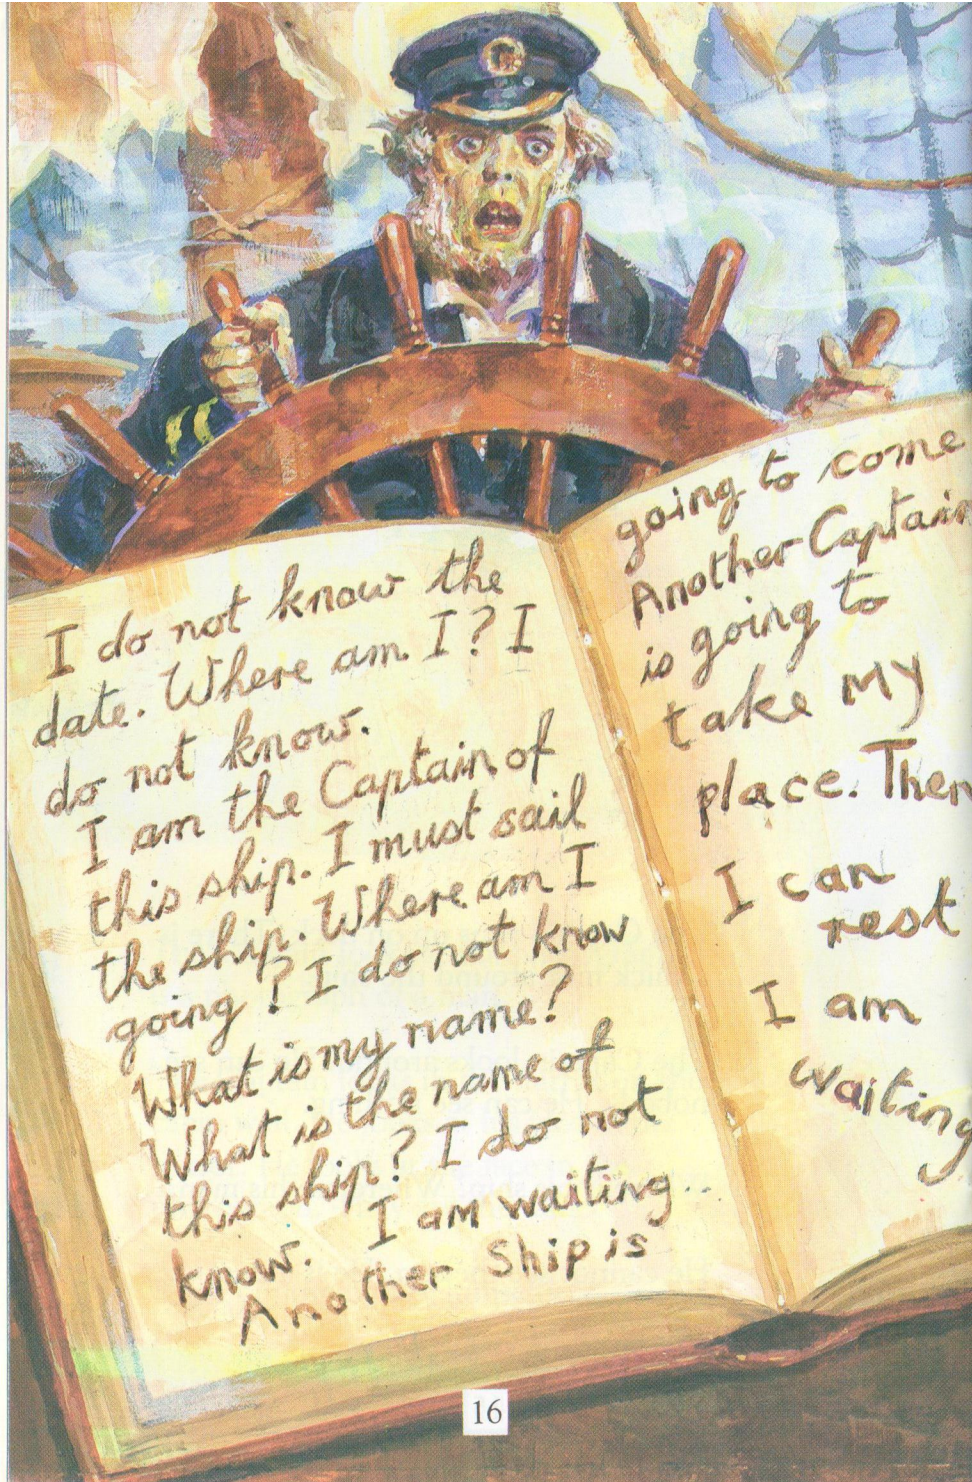 I do not know the
date. Where am I? I
do not know.
I am the Captain of
this ship. I must sail
the ship. Where am I
going? I do not know
What is my name?
What is the name of
this ship? I do not
know. I am waiting...
Another Ship is
going to come
Another Captain
is going to
take My
place. Then
I can
rest
I am
waiting
16